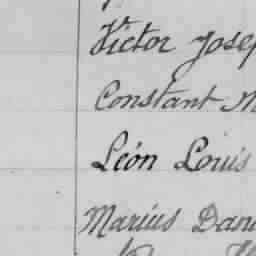 Victor Josep
Constant M
Léon Louis
Marius Dani